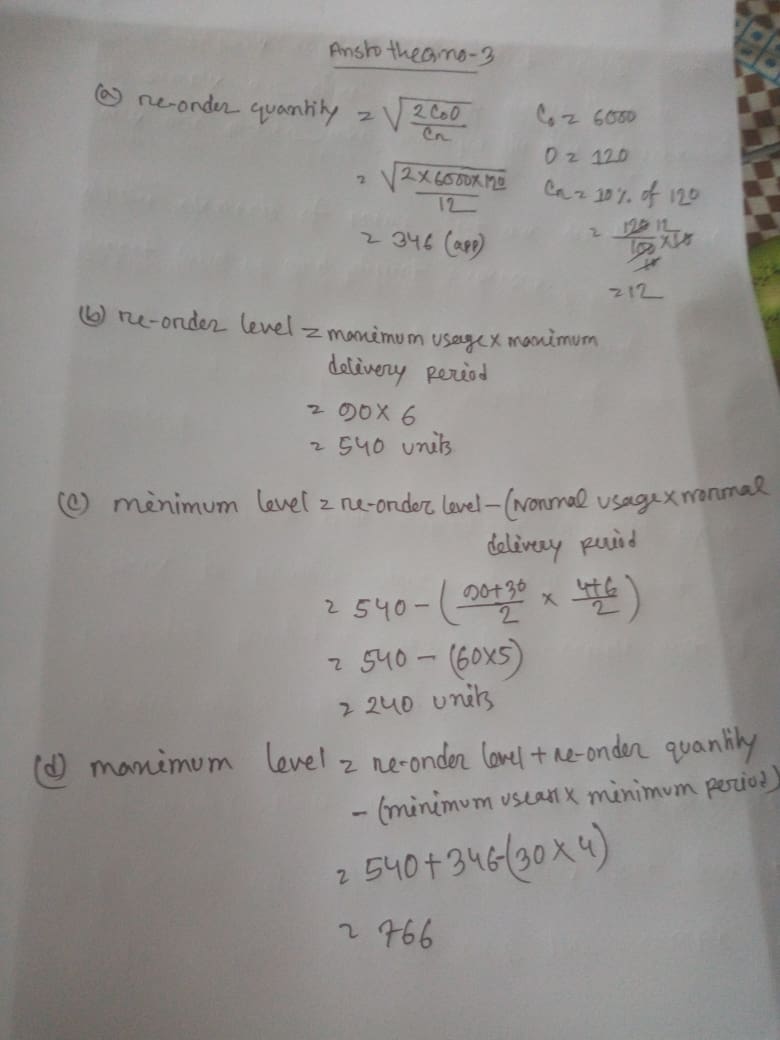 Ans to the Q no-3
(a) re-order quantity = √2C₀O/Cn C₀ = 6000
O = 120
= √2×6000×120/12 Cn = 10% of 120
= 346 (app) = 120 12/100 10 × 10
= 12
(b) re-order level = maximum usage × maximum
delivery period
= 90 × 6
= 540 units
(c) minimum level = re-order level - (normal usage × normal
delivery period
= 540 - (90+30/2 × 4+6/2)
= 540 - (60×5)
= 240 units
(d) maximum level = re-order level + re-order quantity
- (minimum × minimum period)
= 540 + 346 - (30 × 4)
= 766